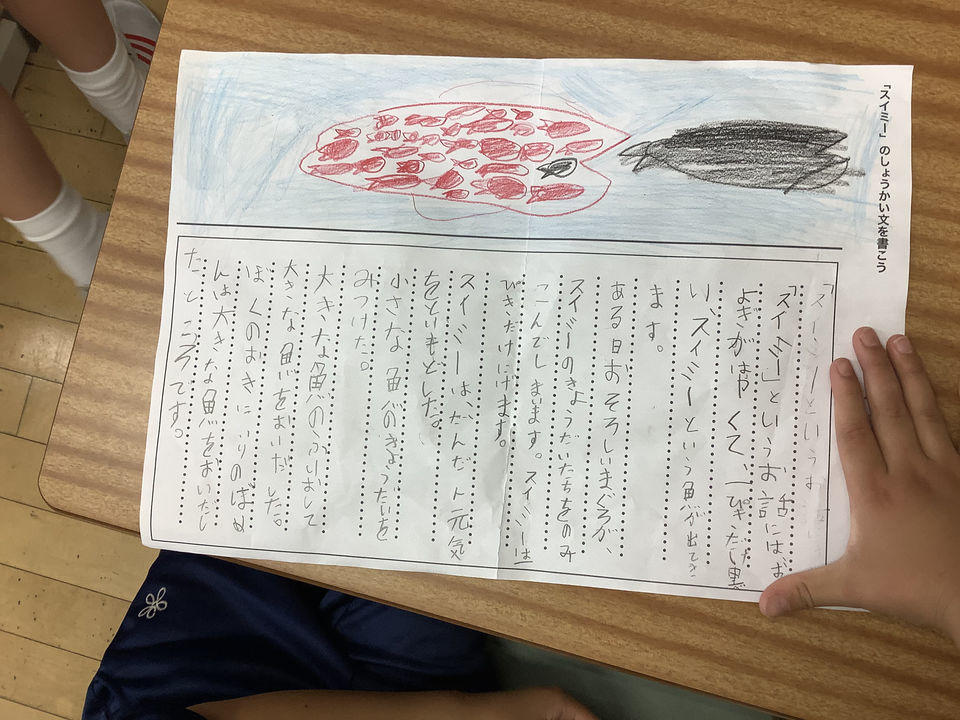 「スイミー」のしょうかい文を書こう
「スイミーという
「スイミー」というお話には、お
よぎがはやくて、一ぴきだけ黒
い、スイミーという魚が出てき
ます。
ある日おそろしいまぐろが、
スイミーのきょうだいたちをのみ
こんでしまいます。スイミーは
ぴきだけにげます。
スイミーはだんだん元気
をとりもどした。
小さな魚のきょうだいを
みつけた。
大きな魚のふりおして
大きな魚をおいだした。
ぼくのおきにいりのばめ
んは大きな魚をおいだし
たところです。